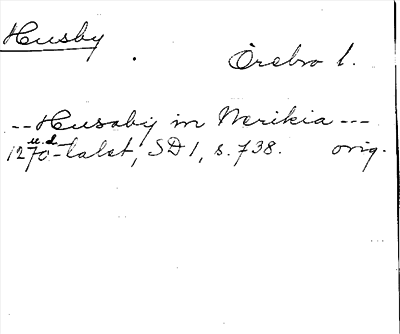 Husby
Örebro l.
-- Husaby in Nerikia ---
u.d.
1270-talet, SD 1, s. 738. orig.